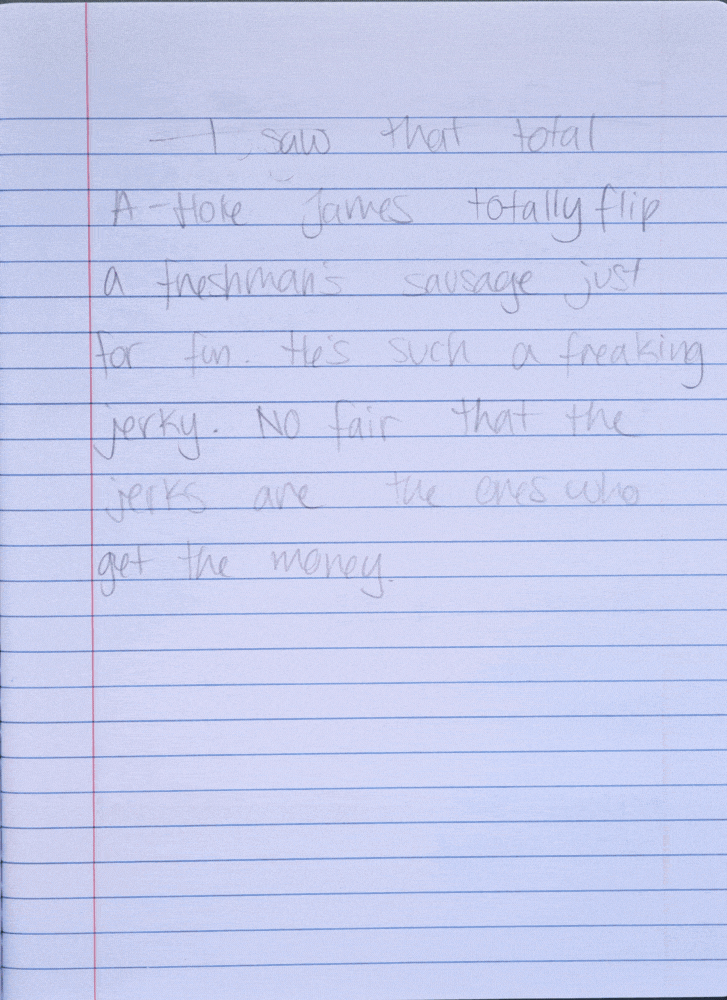 — I saw that total
A-Hole James totally flip
a freshman's sausage just
for fun. He's such a freaking
jerky. No fair that the
jerks are the ones who
get the money.